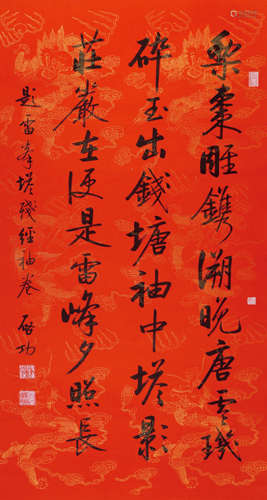 棃棗雕鐫溯晚唐零璣
碎玉出錢塘袖中塔影
莊嚴在便是雷峰夕照長
題雷峯塔殘經袖卷 啟功